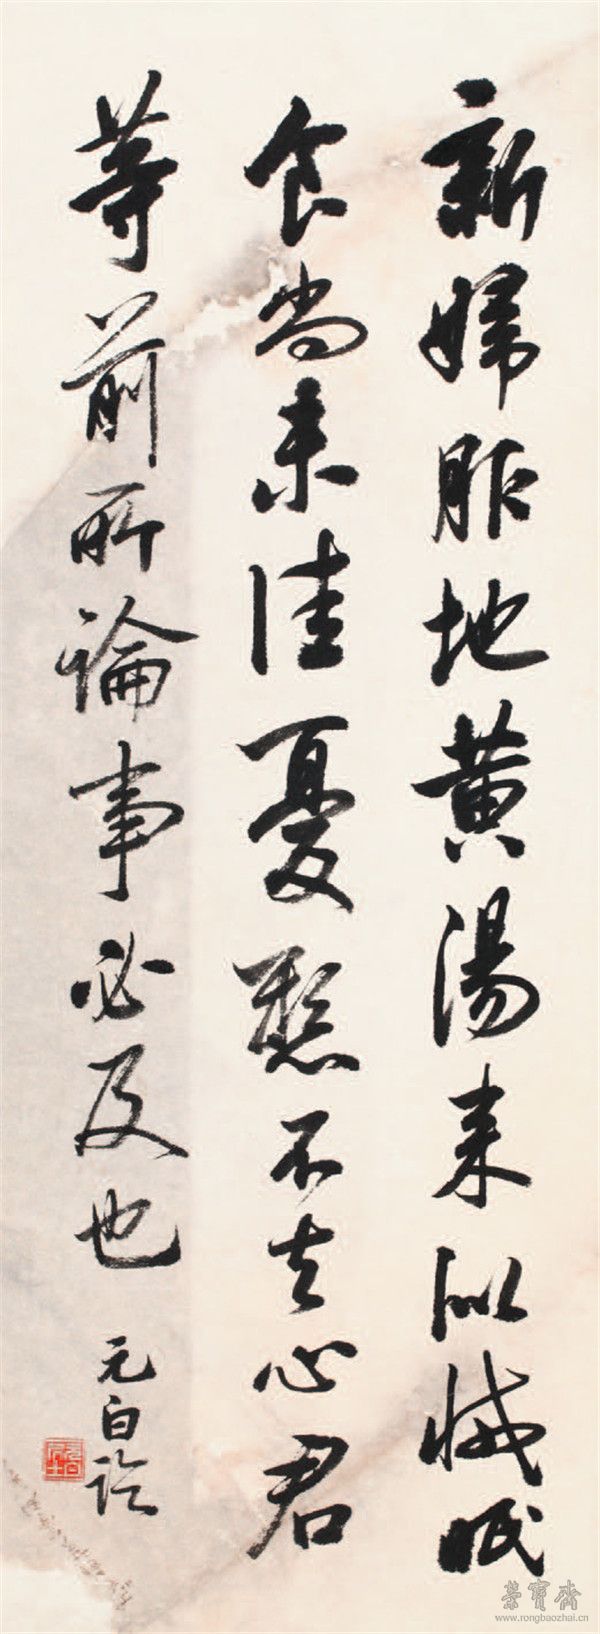 新婦服地黃湯来似減眠
食尚未佳憂懸不去心君
等前所論事必及也
元白臨
榮寶齋
www.rongbaozhai.cn